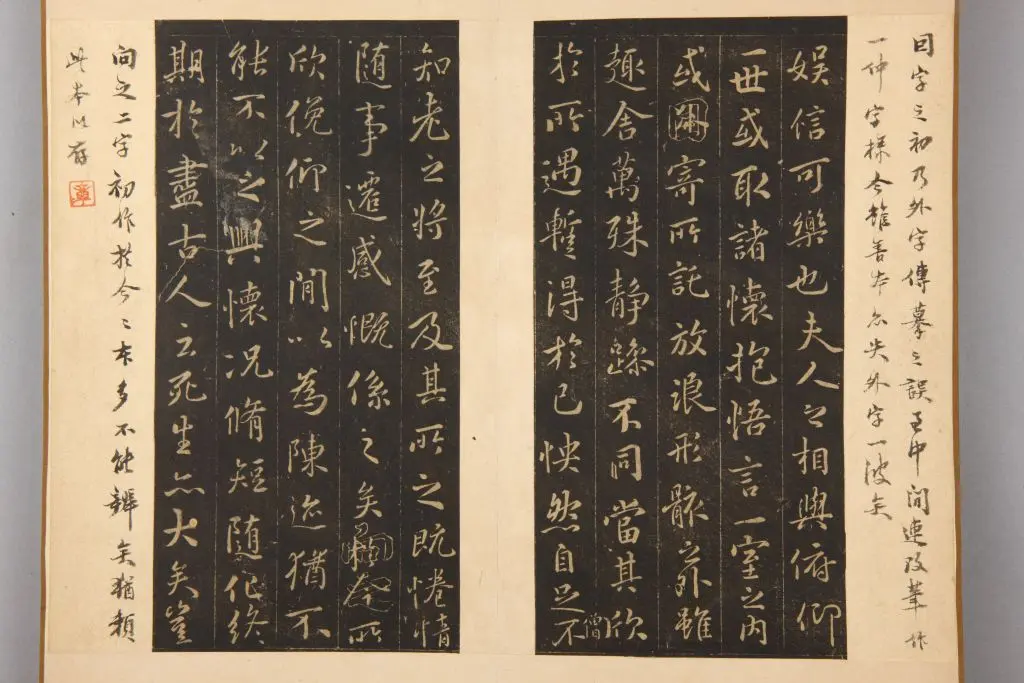 囙字之初乃外字傳摹之誤至中間連改筆作
一仲字樣今雖善本亦失外字一波矣
娛信可樂也夫人之相與俯仰
一世或取諸懷抱悟言一室之內
或因寄所託放浪形骸之外雖
趣舍萬殊靜躁不同當其欣
於所遇暫得於己怏然自足不
僧
知老之將至及其所之既惓情
隨事遷感慨係之矣向之所
欣俛仰之間以為陳迹猶不
能不以之興懷況脩短隨化終
期於盡古人云死生亦大矣豈
向之二字初作於今〻本多不能辨矣猶賴
此本以存